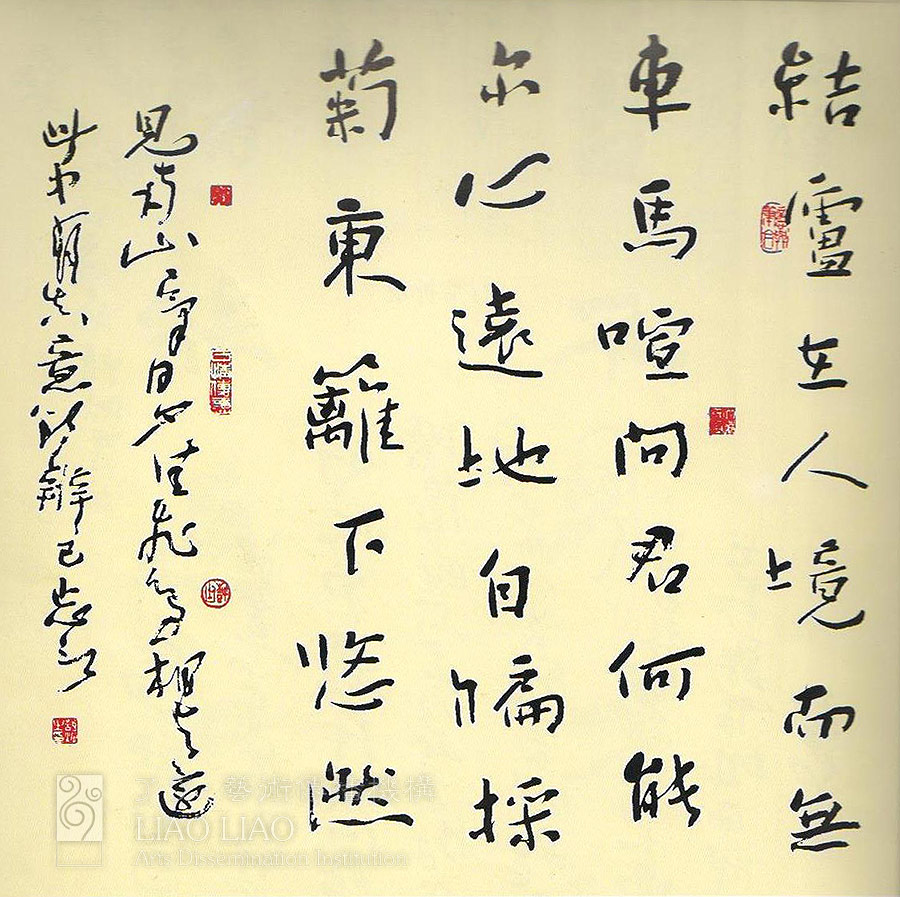 結廬在人境而無
車馬喧問君何能
尔心遠地自偏採
菊東籬下悠然
見南山氣日夕佳飛鳥相与還
此中有真意欲辨已忘言
LIAO LIAO
Arts Dissemination Institution